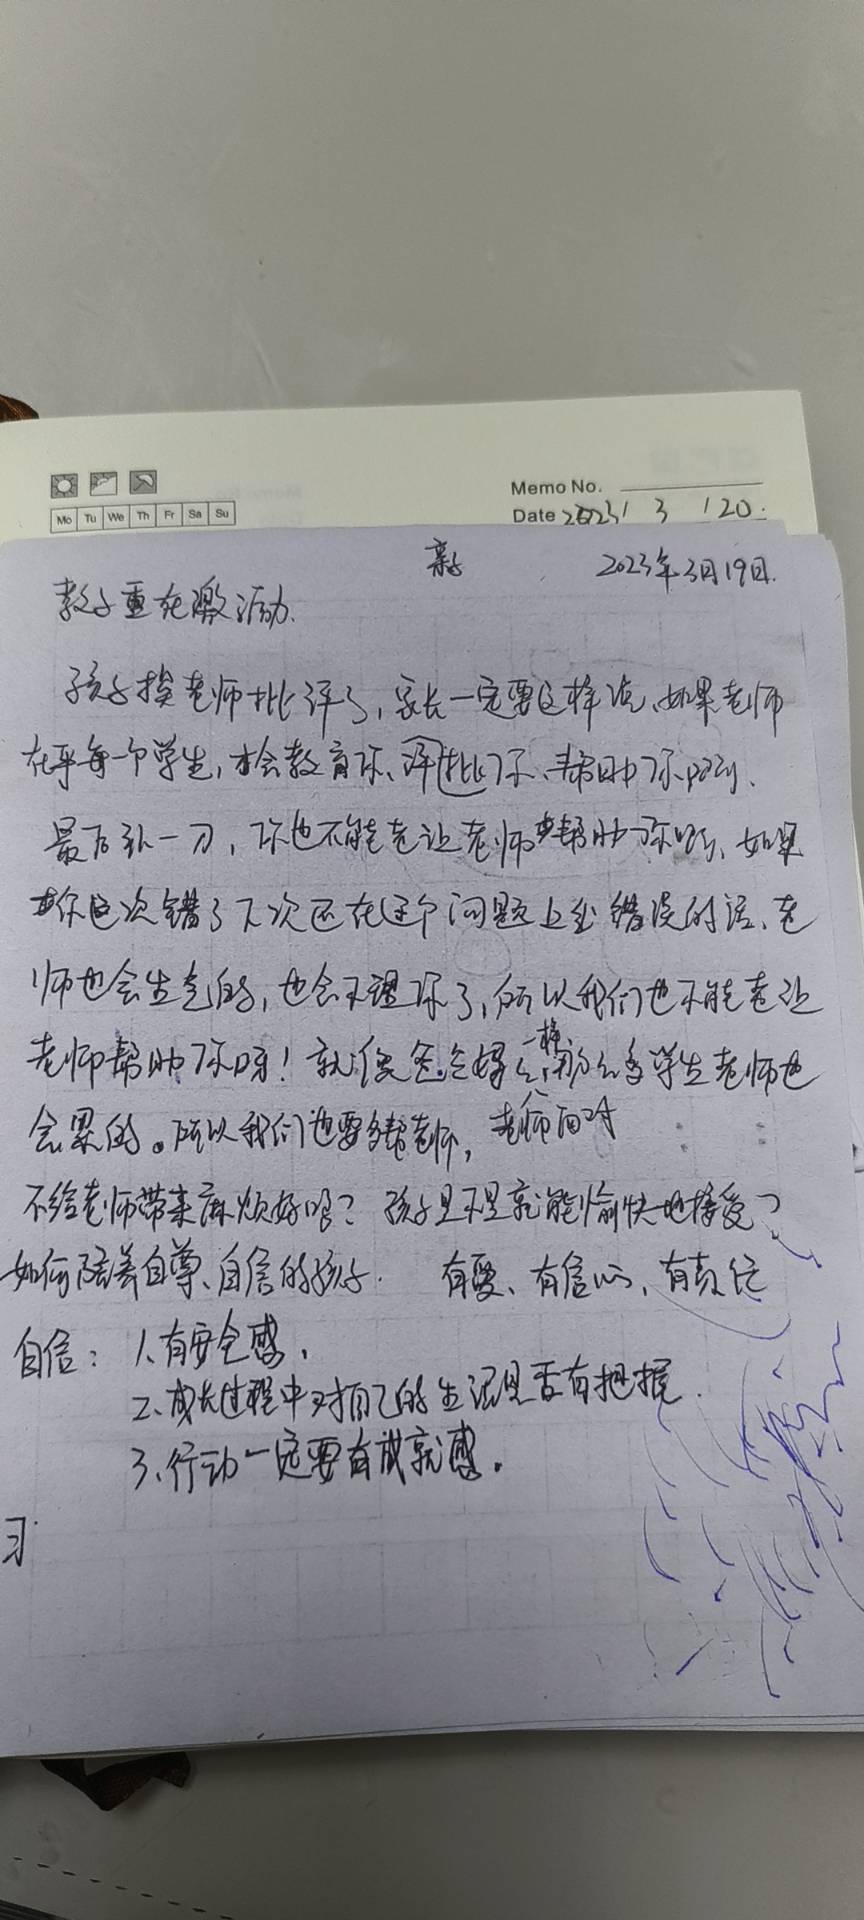 Memo No.
Mo Tu We Th Fr Sa Su
Date 2023/ 3 /20
亲子 2023年3月19日.
教子重在激励.
孩子挨老师批评了,家长一定要这样说、如果老师
在乎每一个学生,才会教育你、评批你、帮助你
最后补一刀,你也不能老让老师帮助你呀、如果
你这次错了下次还在这个问题上出错误的话、老
师也会生气的,也会不理你了,所以我们也不能老让
老师帮助你呀!就像爸爸妈妈一样,那么多学生老师也
会累的。所以我们也要多帮老师, 老师面对
不给老师带来麻烦好吗?孩子是不是就能愉快地接受?
如何陪养自尊、自信的孩子. 有爱、有信心、有责任
自信: 1、有安全感.
2、成长过程中对自己的生活是否有把握.
3、行动一定要有成就感。
习